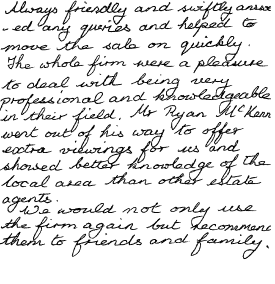 Always friendly and swiftly answer
-ed any queries and helped to
move the sale on quickly.
The whole firm were a pleasure
to deal with being very
professional and knowledgeable
in their field. Mr Ryan McKenn
went out of his way to offer
extra viewings for us and
showed better knowledge of the
local area than other estate
agents.
We would not only use
the firm again but recommend
them to friends and family.